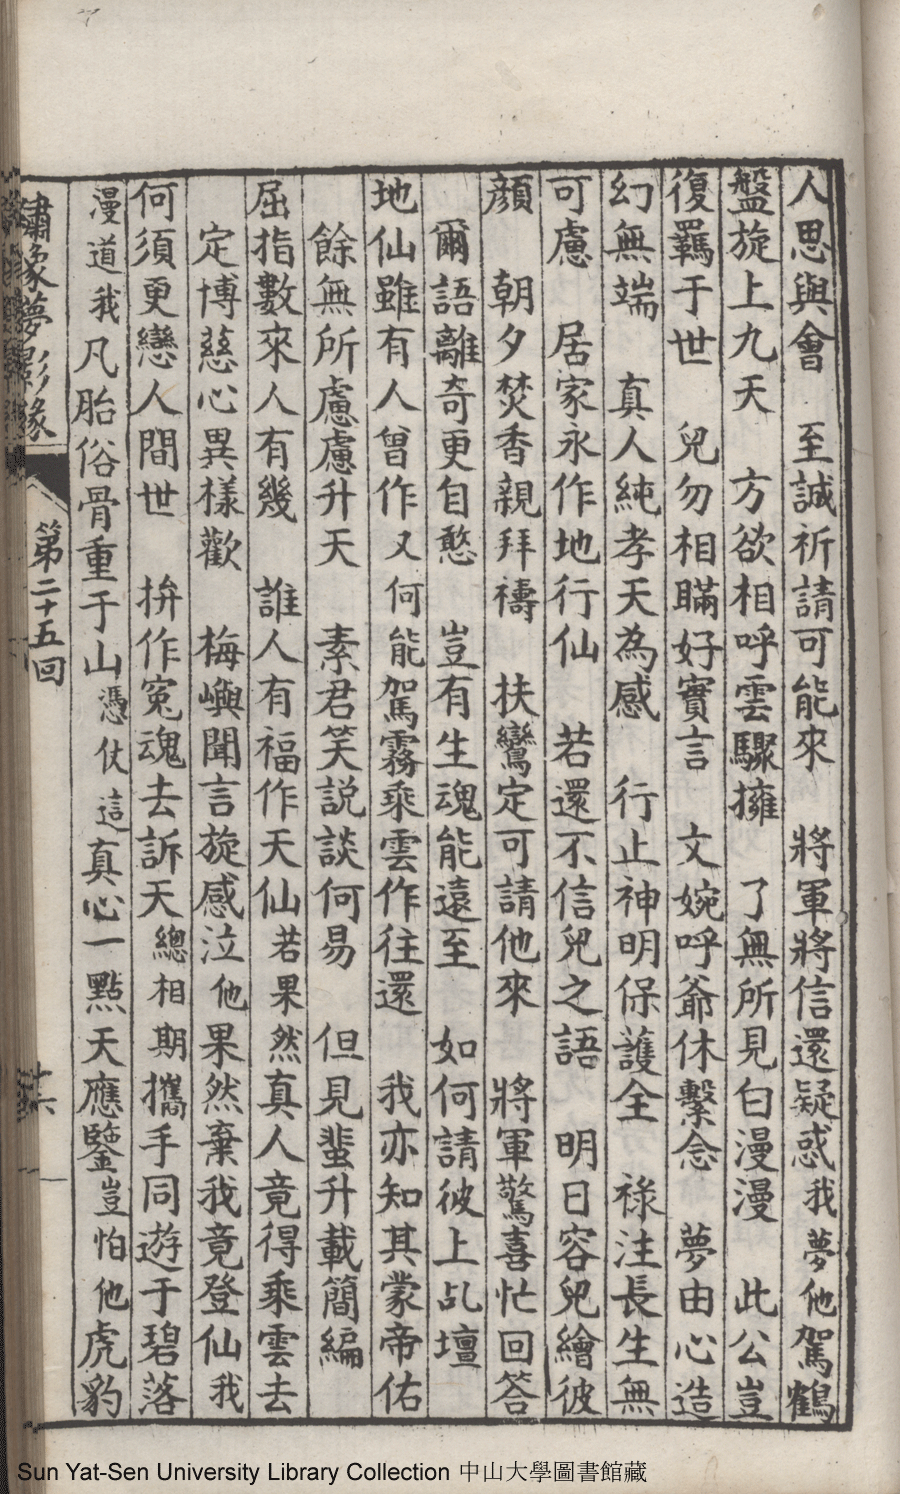 人思與會　至誠祈請可能來　將軍將信還疑惑我夢他駕鶴
盤旋上九天　方欲相呼雲驟擁　了無所見白漫漫　此公豈
復羈于世　兒勿相瞞好實言　文婉呼爺休繫念　夢由心造
幻無端　真人純孝天為感　行止神明保護全　祿注長生無
可慮　居家永作地行仙　若還不信兒之語　明日容兒繪彼
顏　朝夕焚香親拜禱　扶鸞定可請他來　將軍驚喜忙回答
爾語離奇更自憨　豈有生魂能遠至　如何請彼上乩壇
地仙雖有人曾作又何能駕霧乘雲作往還　我亦知其蒙帝佑
餘無所慮慮升天　素君笑説談何易　但見蜚升載簡編
屈指數來人有幾　誰人有福作天仙若果然真人竟得乘雲去
定博慈心異樣歡　梅嶼聞言旋感泣他果然棄我竟登仙我
何須更戀人間世　拚作冤魂去訴天總相期攜手同遊于碧落
漫道我凡胎俗骨重于山憑仗這真心一點天應鑒豈怕他虎豹
繡像夢影緣
第二十五回
Sun Yat-Sen University Library Collection 中山大學圖書館藏